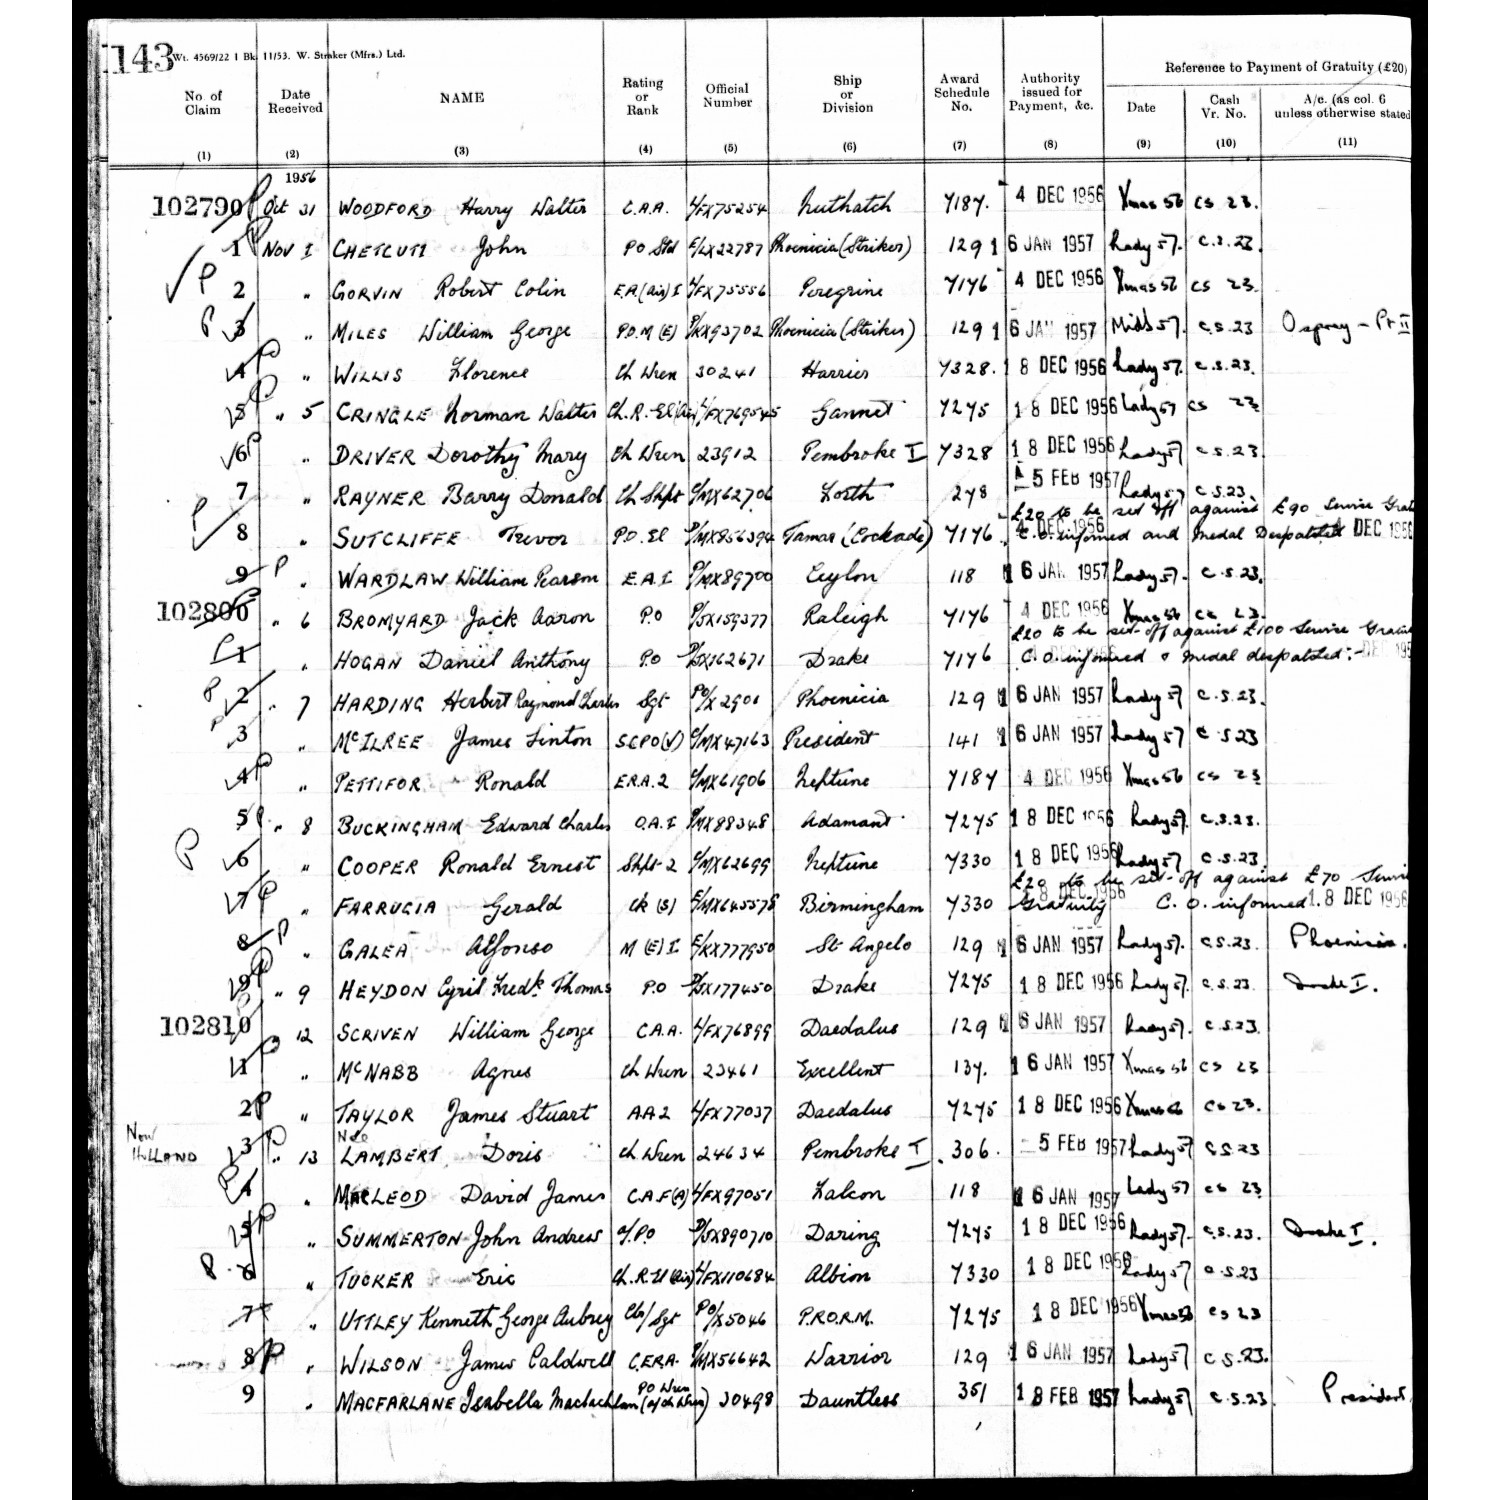 143 Wt. 4569/22 1 Bk. 11/53. W. Straker (Mfrs.) Ltd.
Reference to Payment of Gratuity (£20)
No. of Claim Date Received NAME Rating or Rank Official Number Ship or Division Award Schedule No. Authority issued for Payment, &c. Date Cash Vr. No. A/c. (as col. 6 unless otherwise stated
(1) (2) (3) (4) (5) (6) (7) (8) (9) (10) (11)
1956
102790 P Oct 31 WOODFORD Harry Walter C.A.A. L/FX75254 Nuthatch Y187. 4 DEC 1956 Xmas 56 CS 23.
1 P Nov 1 CHETCUTI John PO Std E/LX22787 Phoenicia (Striker) 129 16 JAN 1957 Lady 57. C.S.23.
P 2 " GORVIN Robert Colin E.A.(Air) I L/FX75556 Peregrine Y176 4 DEC 1956 Xmas 56 CS 23.
P 3 " MILES William George P.O.M (E) P/KX93702 Phoenicia (Striker) 129 16 JAN 1957 Midd 57. C.S.23 Osprey - Pt II
4 P " WILLIS Florence Ch Wren 30241 Harrier Y328. 18 DEC 1956 Lady 57. C.S.23.
5 P " 5 CRINGLE Norman Walter Ch.R.El(Air) L/FX769545 Gannet Y275 18 DEC 1956 Lady 57 CS 23
6 P " DRIVER Dorothy Mary Ch Wren 23912 Pembroke I Y328 18 DEC 1956 Lady 57 C.S.23
7 " RAYNER Barry Donald Ch Shpt C/MX62706 Forth 278 -5 FEB 1957 Lady 57 C.S.23.
£20 to be set off against £90 Service Grat
P 8 " SUTCLIFFE Trevor P.O. El P/MX856394 Tamar (Cockade) Y176. 4 DEC 1956 C.O. informed and medal Despatched 4 DEC 1956
9 P " WARDLAW William Pearson E.A.I P/MX89700 Ceylon 118 16 JAN 1957 Lady 57. C.S.23.
102800 P " 6 BROMYARD Jack Aaron P.O P/JX159377 Raleigh Y176 4 DEC 1956 Xmas 56 CS 23.
£20 to be set-off against £100 Service Gratui
P 1 " HOGAN Daniel Anthony P.O P/JX162671 Drake Y176 C.O. informed & medal despatched:- DEC 195
P 2 " 7 HARDING Herbert Raymond Charles Sgt PO/X 2901 Phoenicia 129 16 JAN 1957 Lady 57 C.S.23.
P 3 " McILREE James Linton S.C.P.O(V) C/MX47163 President 141 16 JAN 1957 Lady 57 C.S23
4 P " PETTIFOR Ronald E.R.A.2 C/MX61906 Neptune Y187 4 DEC 1956 Xmas 56 CS 23
5 P " 8 BUCKINGHAM Edward Charles O.A.I P/MX88348 Adamant Y275 18 DEC 1956 Lady 57. C.S.23.
P 6 " COOPER Ronald Ernest Shpt 2 C/MX62699 Neptune Y330 18 DEC 1956 Lady 57 C.S.23.
£20 to be set-off against £70 Servi
7 P " FARRUGIA Gerald Ck (S) E/MX645578 Birmingham Y330 18 DEC 1956 Gratuity C.O. informed 18 DEC 1956
8 P " GALEA Alfonso M (E) I E/KX777950 St Angelo 129 16 JAN 1957 Lady 57. C.S.23. Phoenicia.
9 P " 9 HEYDON Cyril Fredk. Thomas P.O P/JX177450 Drake Y275 18 DEC 1956 Lady 57. C.S.23. Drake I.
102810 P " 12 SCRIVEN William George C.A.A. L/FX76899 Daedalus 129 16 JAN 1957 Lady 57. C.S.23.
1 P " McNABB Agnes Ch Wren 23461 Excellent 137. 16 JAN 1957 Xmas 56 CS 23
2 P " TAYLOR James Stuart A.A 2 L/FX77037 Daedalus Y275 18 DEC 1956 Xmas 56 CS 23.
Now HOLLAND 3 P " 13 Née LAMBERT Doris Ch Wren 24634 Pembroke I 306. -5 FEB 1957 Lady 57 C.S.23
P 4 " MACLEOD David James C.A.F(A) L/FX97051 Falcon 118 16 JAN 1957 Lady 57 CS 23
5 P " SUMMERTON John Andrew A/P.O P/JX890710 Daring Y275 18 DEC 1956 Lady 57. C.S.23. Drake I.
P 6 " TUCKER Eric Ch.R.El(Air) L/FX110684 Albion Y330 18 DEC 1956 Lady 57 C.S.23
7 " UTTLEY Kenneth George Aubrey Clr/Sgt PO/X5046 P.R.O.R.M. Y275 18 DEC 1956 Xmas 56 CS 23
8 P " WILSON James Caldwell C.E.R.A. P/MX56642 Warrior 129 16 JAN 1957 Lady 57 C.S.23.
9 " MACFARLANE Isabella Maclachlan PO Wren (a/Ch Wren) 30498 Dauntless 351 18 FEB 1957 Lady 57 C.S.23. President.